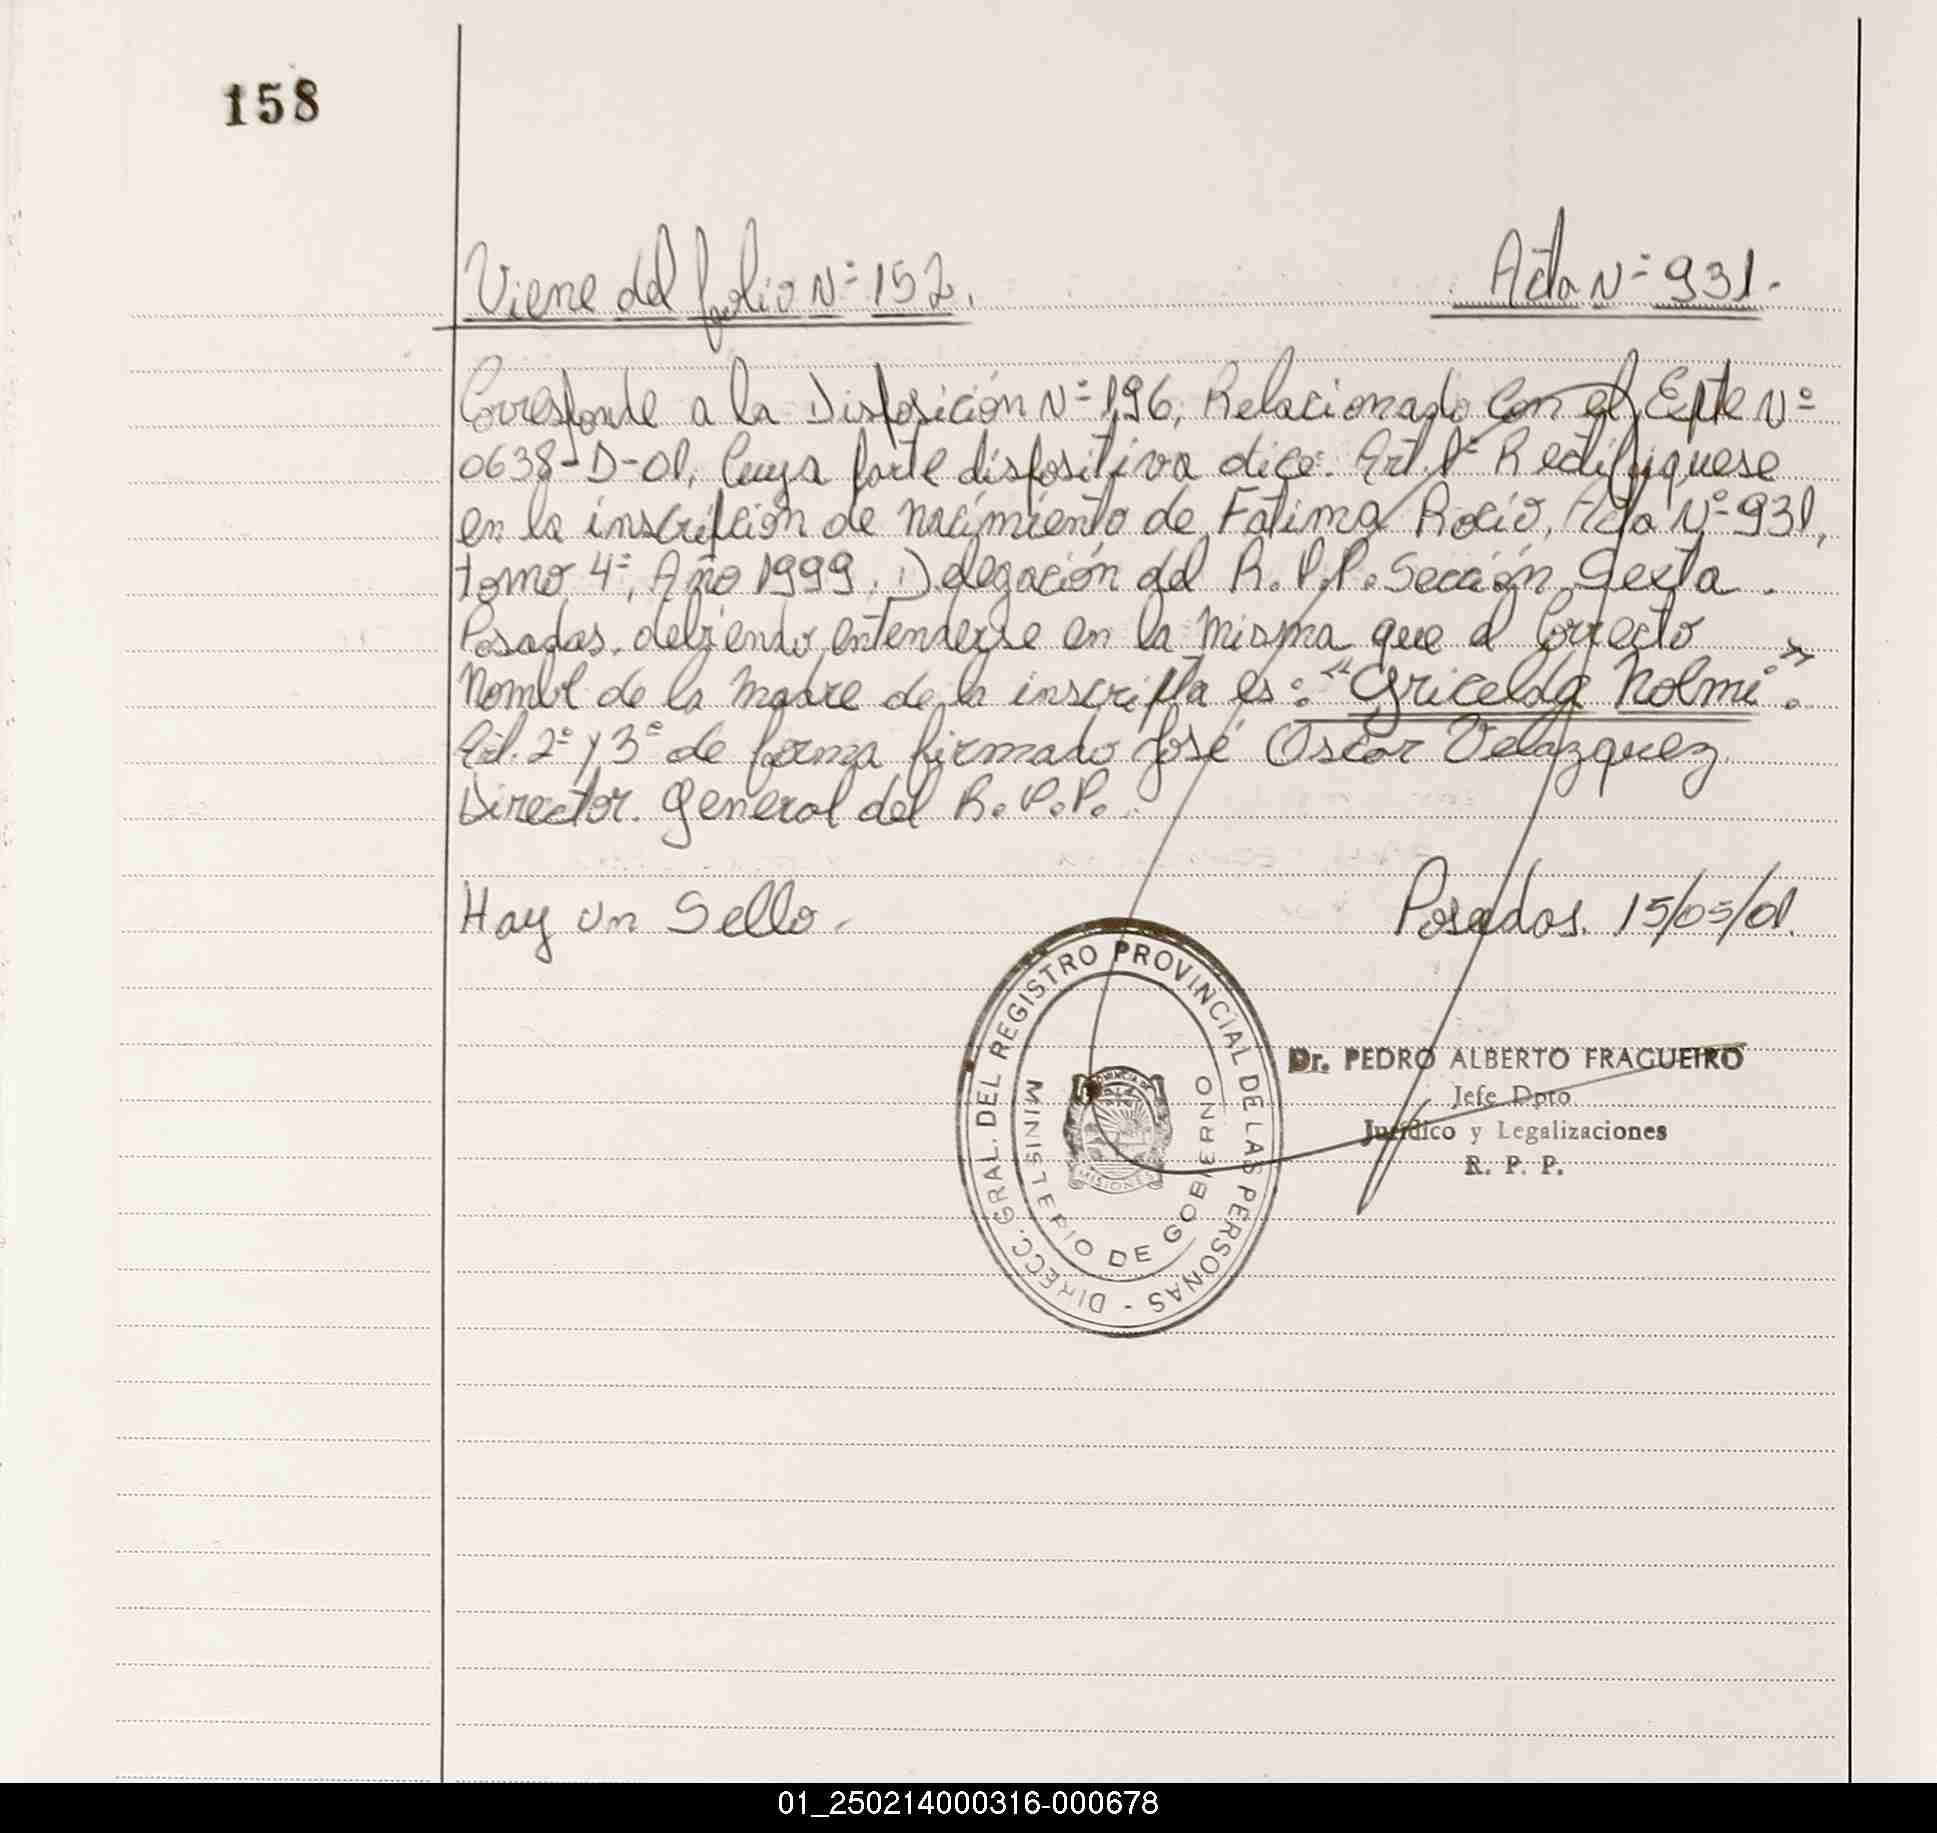 158
Viene del folio Nº 152.
Acta Nº 931.
Corresponde a la Disposición Nº 196, Relacionado con el Expte Nº
0638-D-01, Cuya parte dispositiva dice: Art. 1º Rectifiquese
en la inscripción de nacimiento de Fatima Rocio, Acta Nº 931,
tomo 4º, Año 1999, Delegación del R.P.P. Sección Sexta.
Posadas, debiendo entenderse en la misma que el Correcto
nombre de la madre de la inscripta es: "Gricelda Nolmi".
Art. 2º y 3º de forma firmado José Oscar Velazquez.
Director General del R.P.P..
Hay un Sello.
Posadas. 15/05/01.
DIRECC. GRAL. DEL REGISTRO PROVINCIAL DE LAS PERSONAS -
MINISTERIO DE GOBIERNO
PROVINCIA DE
MISIONES
Dr. PEDRO ALBERTO FRAGUEIRO
Jefe Dpto
Jurídico y Legalizaciones
R. P. P.
01_250214000316-000678